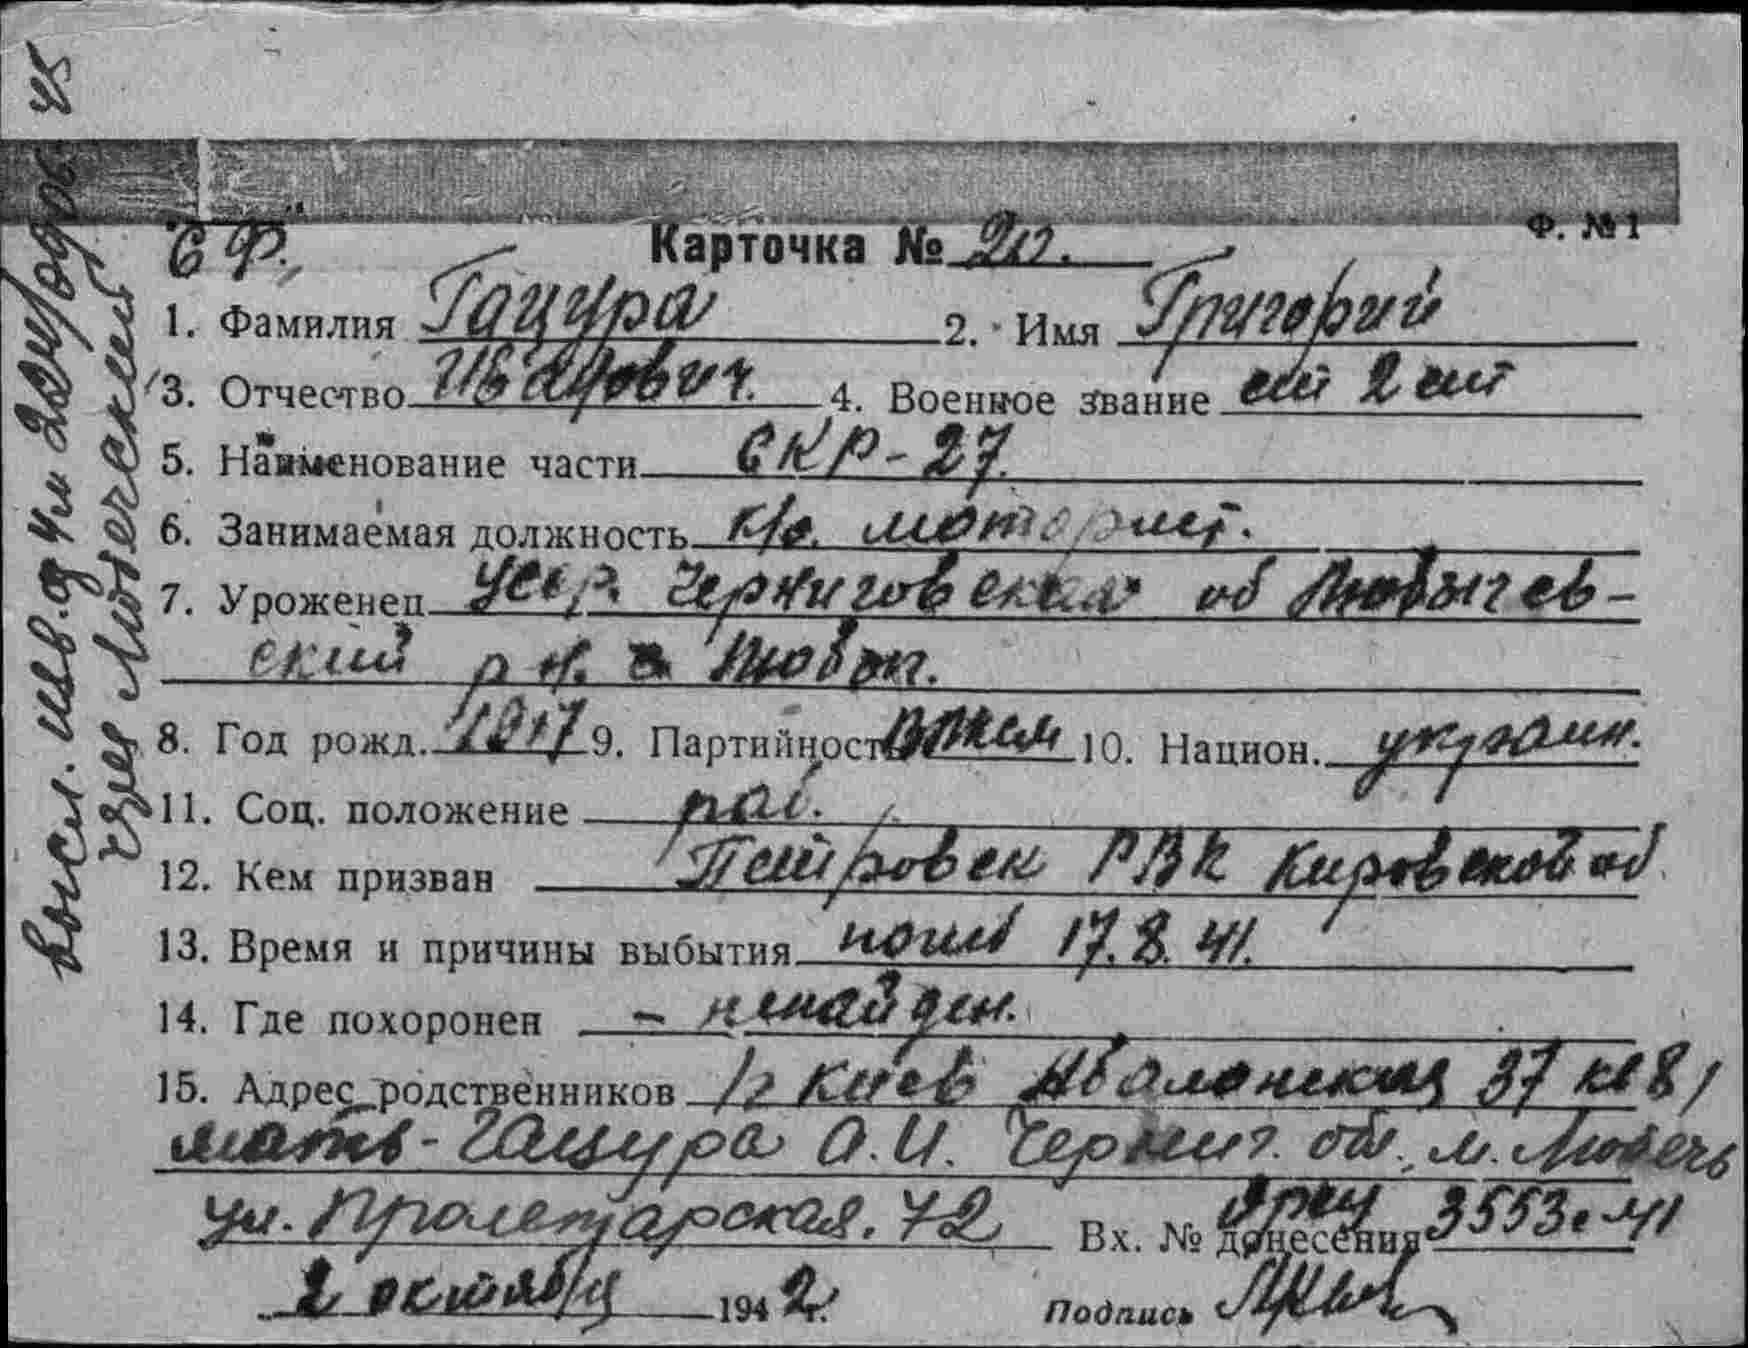 "СФ."
Ф. №1
Карточка №
1. Фамилия Гацура 2. Имя Григорий
3. Отчество Иванович. 4. Военное звание ст 2 ст
5. Наименование части СКР-27.
6. Занимаемая должность к/о. моторист.
7. Уроженец усср. Черниговская об
ский р н.
8. Год рожд. 1917 9. Партийность 10. Национ. украин.
11. Соц. положение раб.
12. Кем призван Петровск РВК Кировской об
13. Время и причины выбытия погиб 17.8.41.
14. Где похоронен - не найден.
15. Адрес родственников г Киев 37 кв 8/
мать - Гацура О. И. Черниг. обл., м. Любечь
ул. Пролетарская. 42 Вх. № донесения 3553с-41
2 октября 1942г.
Подпись